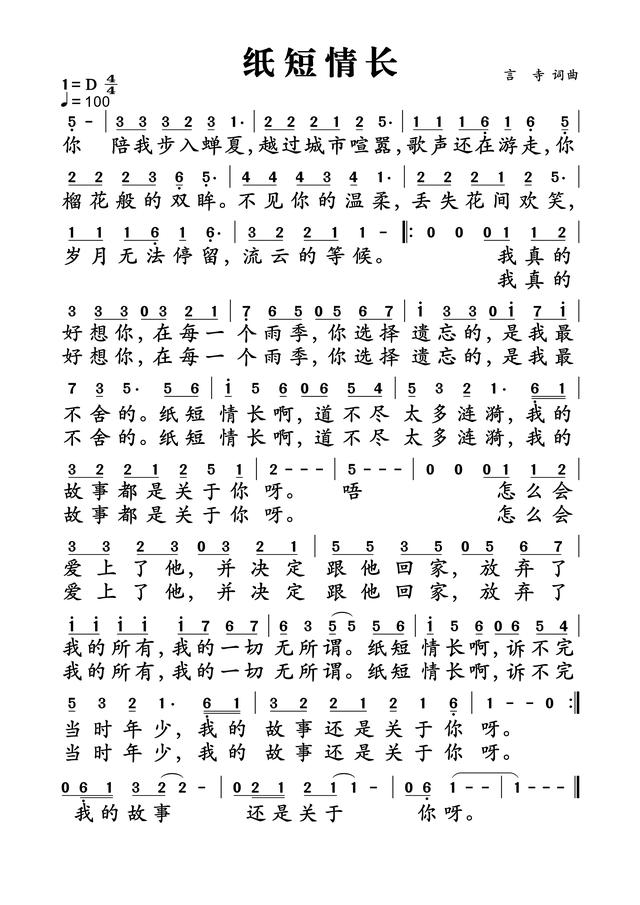 纸短情长
言 寺 词曲
1=D 4/4
♩=100
5 - | 3 3 3 2 3 1· | 2 2 2 1 2 5· | 1 1 1 6 1 6 5 |
你 陪我步入蝉夏,越过城市喧嚣,歌声还在游走,你
2 2 2 3 6 5· | 4 4 4 3 4 1· | 2 2 2 1 2 5· |
榴花般的双眸。不见你的温柔,丢失花间欢笑,
1 1 1 6 1 6· | 3 2 2 1 1 - ‖: 0 0 0 1 1 2 |
岁月无法停留,流云的等候。 我真的
我真的
3 3 3 0 3 2 1 | 7 6 5 0 5 6 7 | 1 3 3 0 1 7 1 |
好想你,在每一个雨季,你选择遗忘的,是我最
好想你,在每一个雨季,你选择遗忘的,是我最
7 3 5· 5 6 | 1 5 6 0 6 5 4 | 5 3 2 1· 6 1 |
不舍的。纸短情长啊,道不尽太多涟漪,我的
不舍的。纸短情长啊,道不尽太多涟漪,我的
3 2 2 1 2 5 1 | 2 - - - | 5 - - - | 0 0 0 1 1 2 |
故事都是关于你呀。 唔 怎么会
故事都是关于你呀。 怎么会
3 3 2 3 0 3 2 1 | 5 5 3 5 0 5 6 7 |
爱上了他,并决定跟他回家,放弃了
爱上了他,并决定跟他回家,放弃了
1 1 1 1 1 7 6 7 | 6 3 5 5 5 6 | 1 5 6 0 6 5 4 |
我的所有,我的一切无所谓。纸短情长啊,诉不完
我的所有,我的一切无所谓。纸短情长啊,诉不完
5 3 2 1· 6 1 | 3 2 2 1 2 1 6 | 1 - - 0 :‖
当时年少,我的故事还是关于你呀。
当时年少,我的故事还是关于你呀。
0 6 1 3 2 2 - | 0 2 1 2 1 1 - | 0 6 1 - - | 1 - - - ‖
我的故事 还是关于 你呀。